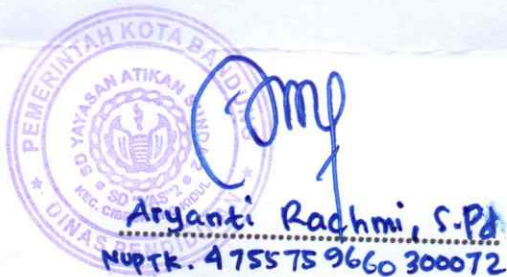 PEMERINTAH KOTA BANDUNG
SD YAYASAN ATIKAN SUNDA 2
SD "YAS" 2
DINAS PENDIDIKAN
Aryanti Rachmi, S.Pd
NUPTK. 4755759660300072